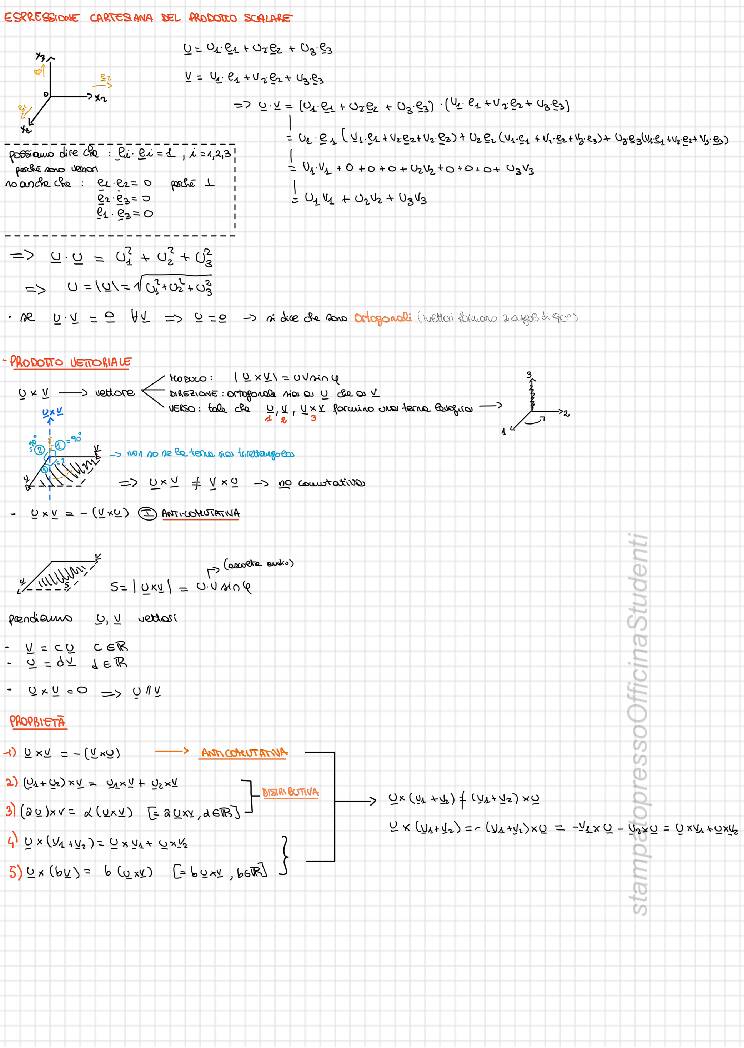 ESPRESSIONE CARTESIANA DEL PRODOTTO SCALARE
U = U1·e1 + U2e2 + U3·e3
V = V1·e1 + V2e2 + V3·e3
=> U·V = (U1·e1 + U2e2 + U3·e3)·(V1·e1 + V2e2 + V3e3)
= U1·e1(V1·e1+V2e2+V3e3)+U2e2(V1·e1+V2·e2+V3·e3)+U3e3(V1e1+V2e2+V3·e3)
= U1·V1 + 0 + 0 + 0 + U2V2 + 0 + 0 + 0 + U3V3
= U1V1 + U2V2 + U3V3
x3
x2
possiamo dire che : ei·ei = 1 , i = 1,2,3
poiché sono versori
so anche che : e1·e2 = 0 poiché ⊥
e2·e3 = 0
e1·e3 = 0
=> U·U = U1² + U2² + U3²
=> U = |U| = √U1²+U2²+U3²
· se U·V = 0 ∀V => U = 0 → si dice che sono ortogonali
- PRODOTTO VETTORIALE
U × V → vettore
MODULO : |U×V| = UV sin φ
DIREZIONE : ortogonale sia a U che a V
VERSO : tale che U, V, U×V formino una terna levogira →
1 2 3
3
2
1
U×V
90°
① = 90°
②
→ non so se la terna sia trirettangola
=> U×V ≠ V×U → no commutativa
- U×V = -(V×U) ① ANTICOMUTATIVA
S = |U×V| = U·V sin φ
prendiamo U, V vettori
- V = cU c∈ℝ
- U = dV d∈ℝ
- U×V = 0 => U∥V
PROPRIETÀ
1) U×V = -(V×U) → ANTICOMUTATIVA
2) (U1+U2)×V = U1×V + U2×V
DISTRIBUTIVA
3) (aU)×V = a(U×V) [= aU×V, a∈ℝ]
4) U×(V1+V2) = U×V1 + U×V2
5) U×(bV) = b(U×V) [= bU×V, b∈ℝ]
U×(V1+V2) ≠ (V1+V2)×U
U×(V1+V2) = -(V1+V2)×U = -V1×U - V2×U = U×V1+U×V2
stampatopressoOfficinaStudenti